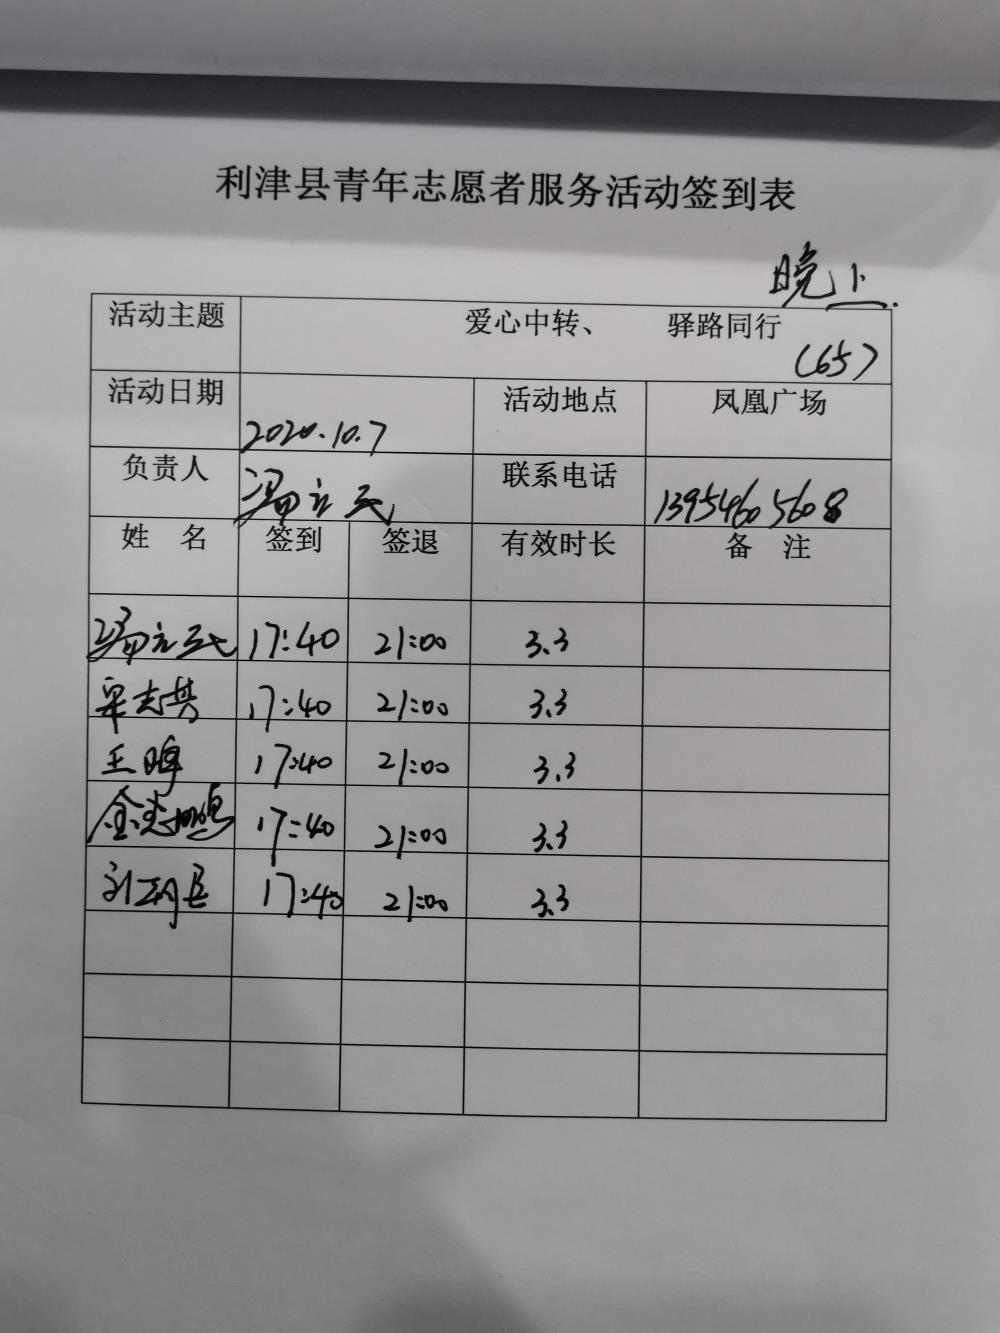 利津县青年志愿者服务活动签到表
晚上
活动主题 爱心中转、 驿路同行
(65)
活动日期 2020.10.7 活动地点 凤凰广场
负责人 冯立 联系电话 13954605608
姓 名 签到 签退 有效时长 备 注
冯立 17:40 21:00 3.3
志 17:40 21:00 3.3
王晖 17:40 21:00 3.3
金 17:40 21:00 3.3
刘 17:40 21:00 3.3